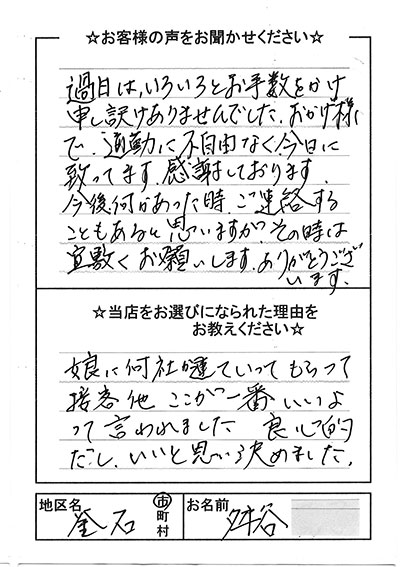 ☆お客様の声をお聞かせください☆
過日は、いろいろとお手数をかけ
申し訳ありませんでした。おかげ様
で、通勤に不自由なく今日に
致ってます。感謝しております。
今後何かあった時、ご連絡する
こともあると思いますが、その時は
宜敷くお願いします。ありがとうござ
います。
☆当店をお選びになられた理由を
お教えください☆
娘に何社か連ていってもらって
接客他 ここが一番いいよ
って言われました 良心的
だし、いいと思い決めました。
地区名
釜石
市
町
村
お名前
谷